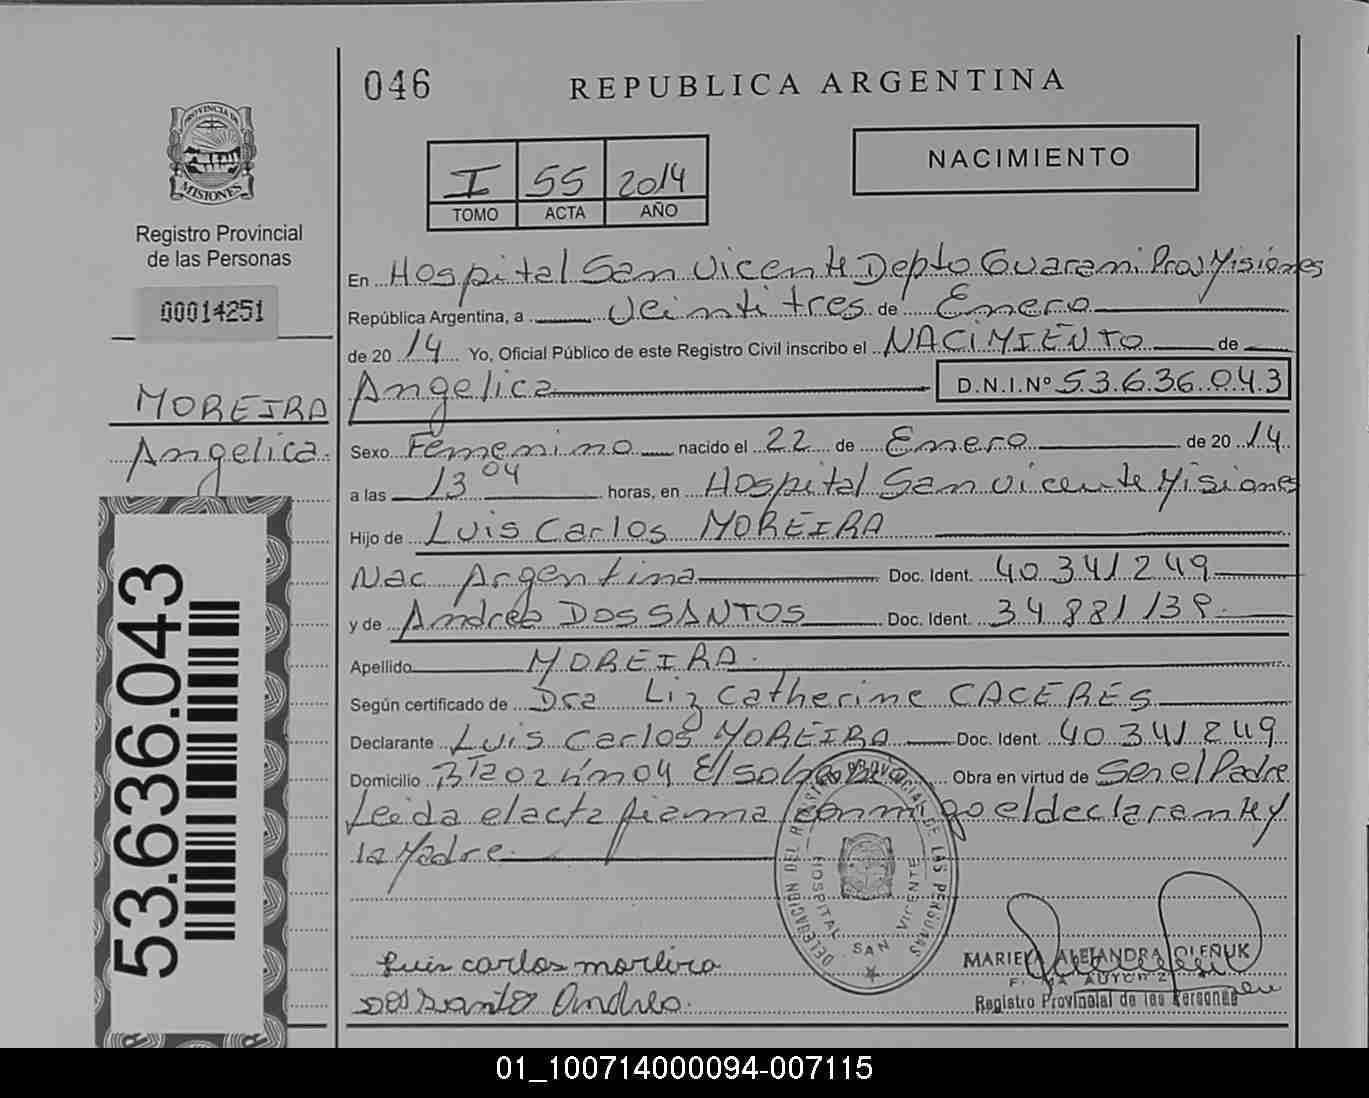 046
REPUBLICA ARGENTINA
PROVINCIA DE
MISIONES
Registro Provincial
de las Personas
00014251
MOREIRA
Angelica.
53.636.043
I 55 2014
TOMO ACTA AÑO
NACIMIENTO
En Hospital San Vicente Depto Guarani Prov Misiones
República Argentina, a Veintitres de Enero
de 20 14 Yo, Oficial Público de este Registro Civil inscribo el NACIMIENTO de
Angelica D.N.I.Nº 53.636.043
Sexo Femenino nacido el 22 de Enero de 20 14
a las 13 04 horas, en Hospital San Vicente Misiones
Hijo de Luis Carlos MOREIRA
Nac Argentina Doc. Ident. 40 341 249
y de Andrea DOS SANTOS Doc. Ident. 34 881 139
Apellido MOREIRA
Según certificado de Dra Liz Catherine CACERES
Declarante Luis Carlos MOREIRA Doc. Ident. 40 341 249
Domicilio Obra en virtud de Ser el Padre
Leida el acta firma conmigo el declarante y
la Madre
DELEGACION DEL REGISTRO PROVINCIAL DE LAS PERSONAS
HOSPITAL SAN VICENTE
Luis carlos moreira
Dos santos Andrea.
MARIELA ALEJANDRA OLENUK
Registro Provincial de las Personas
01_100714000094-007115